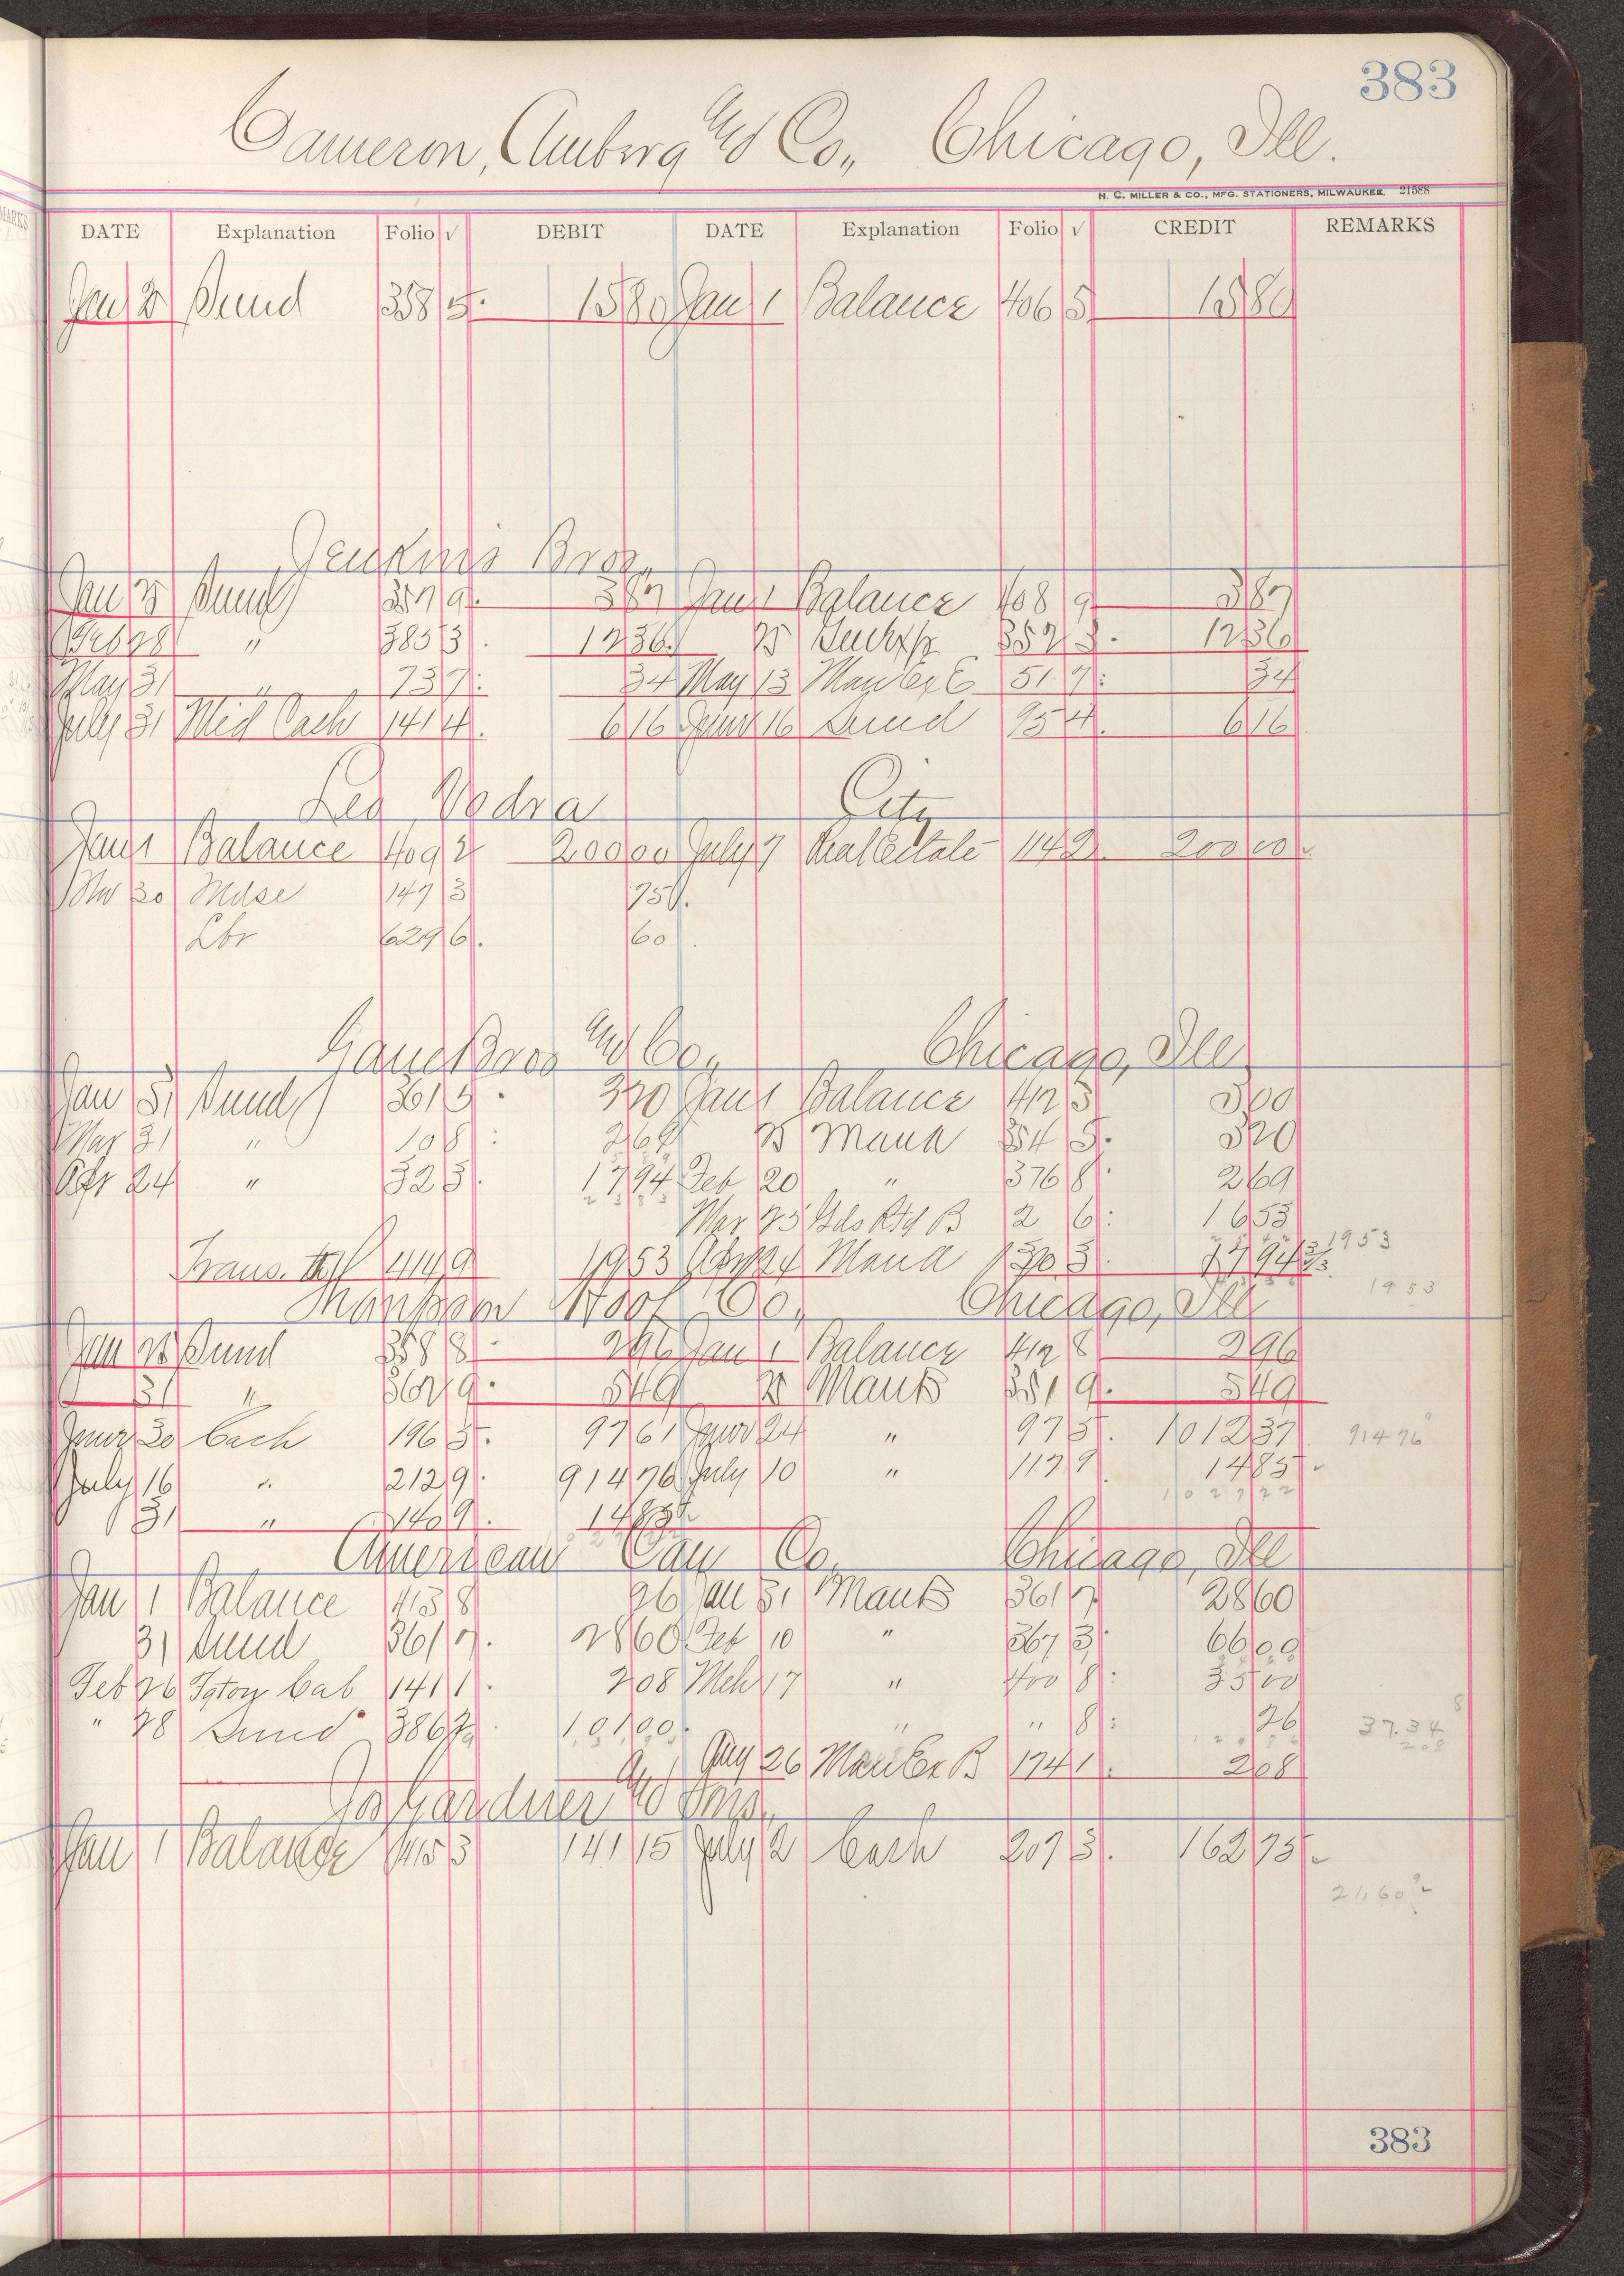 383
Cameron, Amberg & Co., Chicago, Ill.
H. C. MILLER & CO., MFG. STATIONERS, MILWAUKEE. 21588
DATE Explanation Folio √ DEBIT DATE Explanation Folio √ CREDIT REMARKS
Jan 25 Sund 358 5. 1580 Jan 1 Balance 406 5 1580
Jenkins Bros.
Jan 25 Sund 357 9. 387 Jan 1 Balance 408 9 387
Feb 28 " 385 3. 1236 25 352 3. 1236
May 31 " 73 7. 34 May 13 51 7. 34
July 31 Mid Cash 141 4. 616 June 16 Sund 95 4. 616
Leo Vodra City
Jan 1 Balance 409 2 20000 July 7 Real Estate 114 2. 20000
Nov 30 Mdse 147 3 75.
Lbr 629 6. 60.
Gane Bros & Co., Chicago, Ill
Jan 31 Sund 361 5. 320 Jan 1 Balance 412 3 300
Mar 31 " 108 : 269 25 Manu 354 5. 320
Apr 24 " 32 3. 1794 Feb 20 " 376 8. 269
Mar 25 Gds Rtd B 2 6: 1653
Trans. 414 9 1953 Apr 24 Manu 130 3. 1794 1953
1953
Thompson Wood Co., Chicago, Ill
Jan 25 Sund 358 8. 296 Jan 1 Balance 412 8 296
31 " 362 9. 549 25 Manu B 351 9. 549
June 30 Cash 196 5. 9761 June 24 " 97 5. 101237 91476
July 16 " 212 9. 91476 July 10 " 117 9. 1485
102722
31 " 140 9. 1485
American Can Co. Chicago, Ill
Jan 1 Balance 413 8 26 Jan 31 Manu B 361 7 2860
31 Sund 361 7. 2860 Feb 10 " 367 3. 6600
Feb 26 Fgtory Cab 141 1. 208 Mch 17 " 400 8: 3500
" 28 Sund 386 10100. " " 8: 26 37.34
Aug 26 Manu Ex B 174 1. 208
Jos Gardner & Sons,
Jan 1 Balance 415 3 14115 July 2 Cash 207 3. 16275
21.60
383